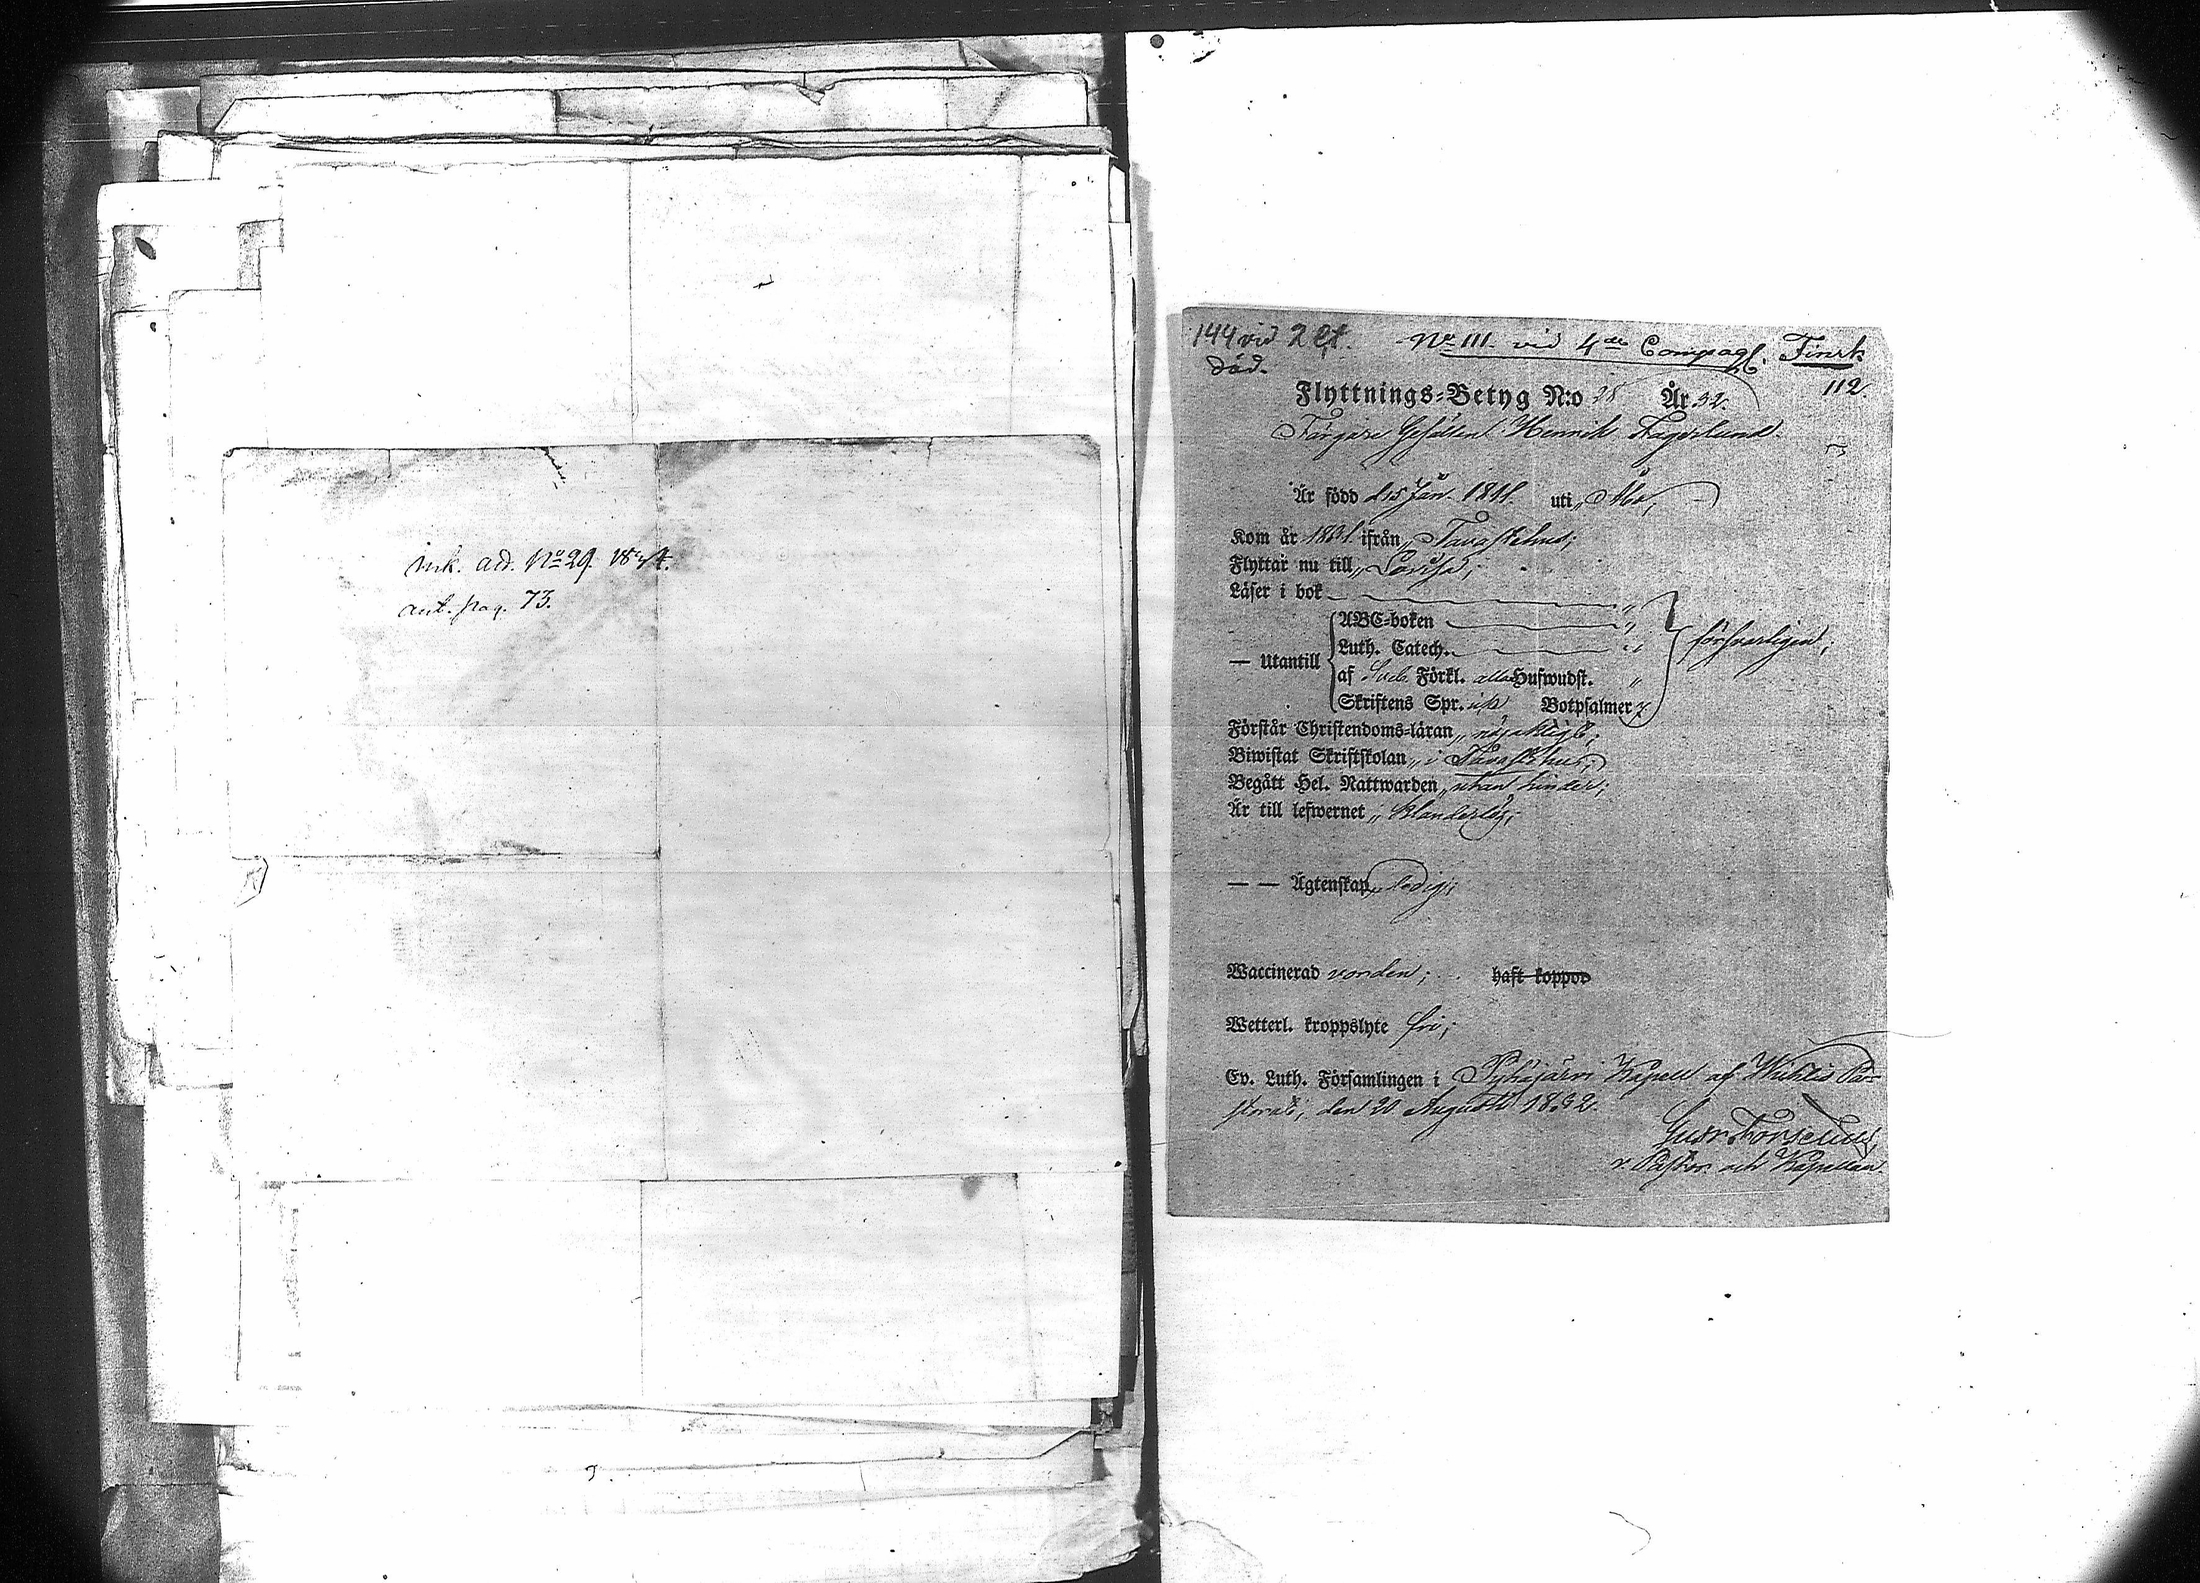 ink. ad. No 29 1834.
ant. pag. 73.
144 vid 2 Ct. No 111. vid 4de Compagt. Finsk
död.
112.
Flyttnings-Betyg N:o 28 År 32.
Färgare Gesällen Henrik Fagerlund.
Är född d. 15 Jan. 1811. uti „ Åbo,
Kom år 1831. ifrån „ Tavastehus;
Flyttar nu till „ Lovisa;
Läser i bok
ABC-boken
Luth. Catech.
försvarligen;
— Utantill
af Sveb. Förkl. alla Hufwudst.
Skriftens Spr. och Botpsalmer
Förstår Christendoms-läran „ nöjaktigt;
Biwistat Skriftskolan „ i Tavastehus;
Begått Hel. Nattwarden „ utan hinder;
Är till lefwernet „ klanderlös;
— — Ägtenskap „ ledig;
Waccinerad vorden; haft koppor
Wetterl. kroppslyte fri;
Ev. Luth. Församlingen i Pyhäjärvi Kapell af Wichtis Pa-
storat, den 20 Augusti 1832.
Gust. Forselius,
v. Pastor och Kapellan.